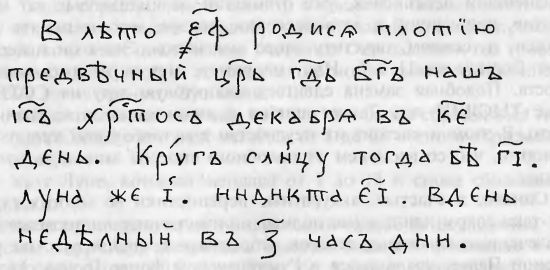 В лѣто ҂еф родисѧ плотїю
предвѣчный цр҃ь гд҃ь бг҃ъ нашъ
іс҃ъ хрт҃осъ декабрѧ въ к҃е
день. Крꙋ́гъ сл҃нцу тогда бѣ г҃і
луна же і҃. индикта е҃і. вдень
недѣлный въ з҃ часъ дни.